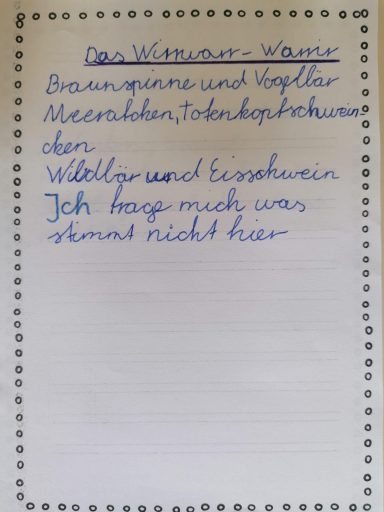 Das Wirrwarr-Warrir
Braunspinne und Vogelbär
Meeraffchen, Totenkopfschwein-
chen
Wildbär und Eisschwein
Ich frage mich was
stimmt nicht hier